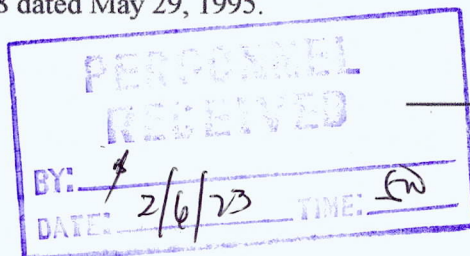 8 dated May 29, 1995.
PERSONNEL
RECEIVED
BY:
DATE: 2/6/23 TIME: